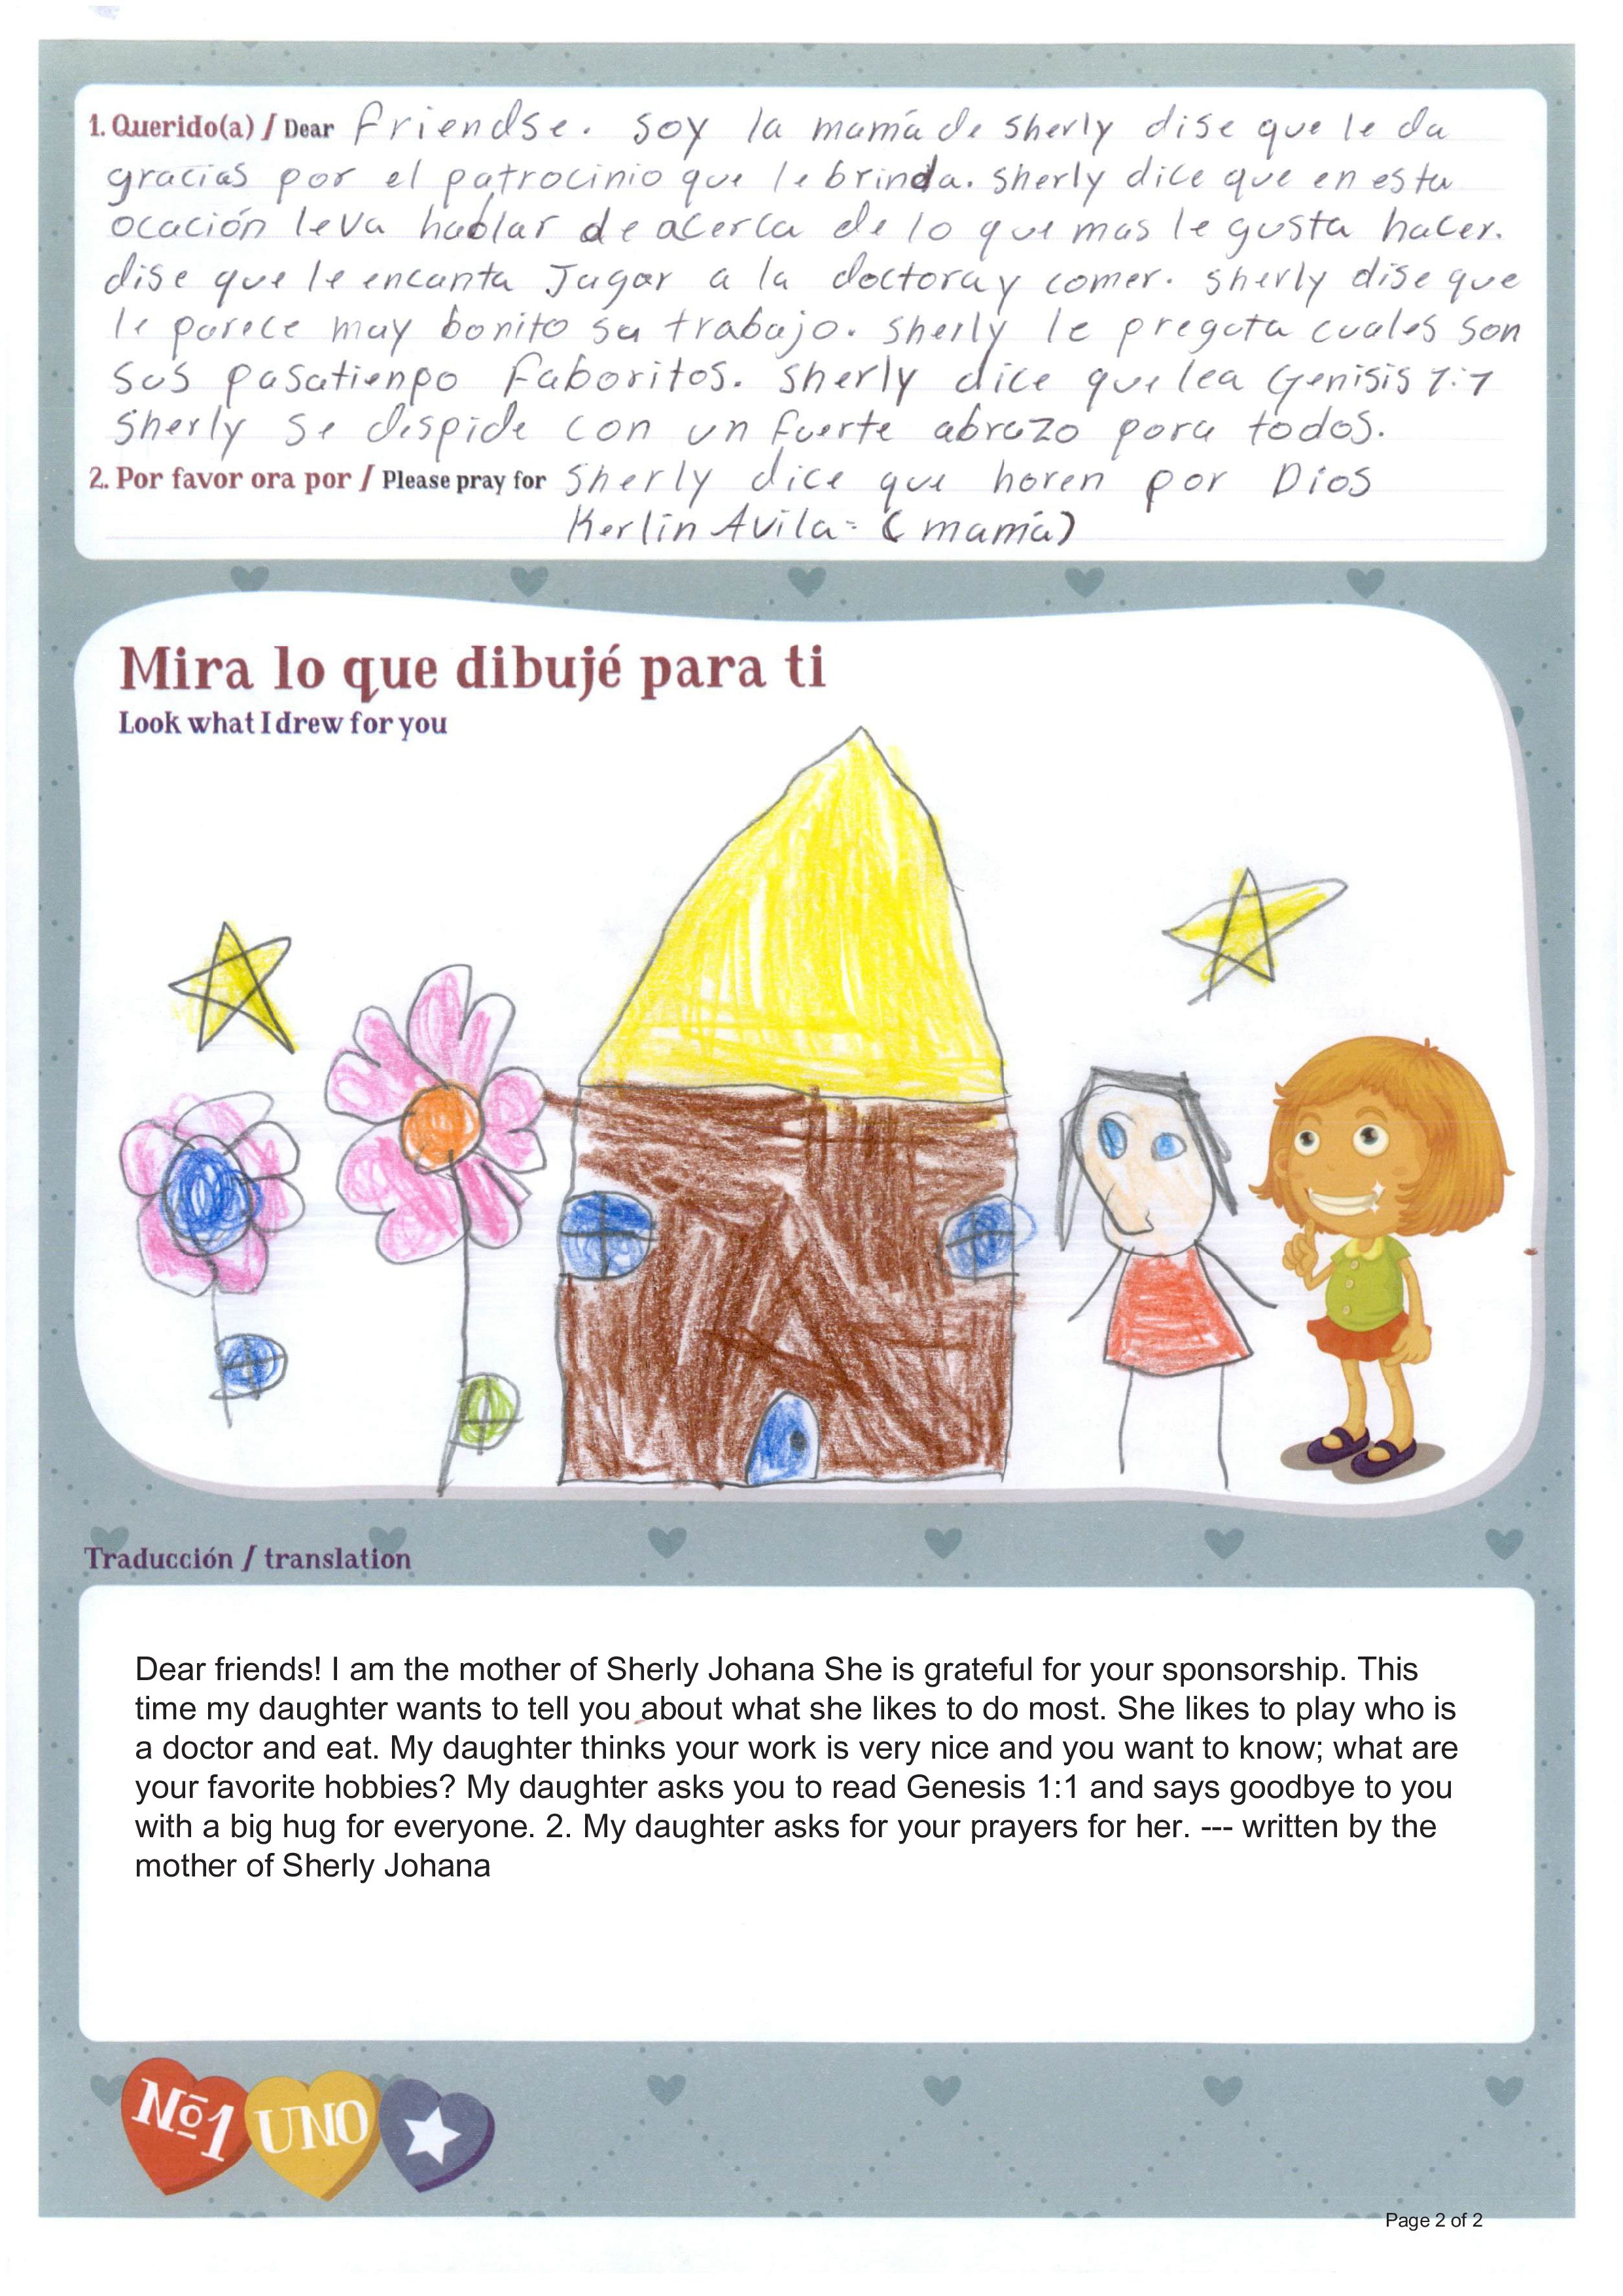 1. Querido(a) / Dear friendse. soy la mamá de sherly dise que le da
gracias por el patrocinio que le brinda. sherly dice que en esta
ocación leva hablar de acerca de lo que mas le gusta hacer.
dise que le encanta Jugar a la doctora y comer. sherly dise que
le parece muy bonito su trabajo. sherly le pregota cuales son
sus pasatienpo faboritos. sherly dice que lea Genisis 1:1
sherly se despide con un fuerte abrazo para todos.
2. Por favor ora por / Please pray for sherly dice que horen por Dios
Kerlin Avila = (mamá)
Mira lo que dibujé para ti
Look what I drew for you
Traducción / translation
Dear friends! I am the mother of Sherly Johana She is grateful for your sponsorship. This
time my daughter wants to tell you about what she likes to do most. She likes to play who is
a doctor and eat. My daughter thinks your work is very nice and you want to know; what are
your favorite hobbies? My daughter asks you to read Genesis 1:1 and says goodbye to you
with a big hug for everyone. 2. My daughter asks for your prayers for her. --- written by the
mother of Sherly Johana
Nº1 UNO
Page 2 of 2